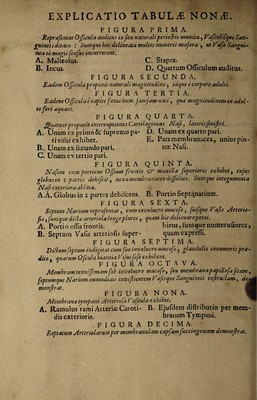 EXPLICATIO TABULÆ NONÆ.
FIGURA PRIMA.
Repræsentat Ossicula auditus in situ naturali periostio munita, Vasculisque Sanguineis
dotata : Suntque hic delineata multis numeris majora, ut Vasa Sanguinea
eo magis sensus incurrerent.
A. Malleolus.
B. Incus.
C. Stapes.
D. Quartum Ossiculum auditus.
FIGURA SECUNDA,
Eadem Ossicula proponit naturali magnitudine, idque e corpore adulti.
FIGURA TERTIA.
Eadem Ossicula è capite fœtus hum. jamjam nati, qua magnitudinem in adulto
ferè æquant.
FIGURA QUARTA.
Quatuor proponit interceptiones Cartilagineas Nasi, lateris sinistri.
A. Unam ex primo & supremo parivisui
exhibet.
B. Unam ex secundo pari.
C. Unam ex tertio pari.
D. Unam ex quarto pari.
E. Pars membranacea, unius pinnæ
Nasi.
FIGURA QUINTA.
Nasum cum portione Ossium frontis & maxillæ superioris exhibet, cujus
globus in 2 partes dehiscat, nexu membranaceo dissilienti. Suntque integumenta
Nasi exteriora ablata.
A.A. Globus in 2 partes dehiscens. B. Portio Septi narium.
FIGURA SEXTA.
Septum Narium repræsentat, cum involucro mucoso, suisque Vasis Arteriosis,
suntque dicta arteriosa longe plures, quam hic delineare potui.
A. Portio ossis frontis.
B. Septum Vasis arteriosis superbibus,
suntque numerosiores,
quam expressi.
FIGURA SEPTIMA.
Dictum septum indigitat cum suo involucro mucoso, glandulis innumeris prædito,
quarum Oscula hiantia Visui sese exhibent.
FIGURA OCTAVA.
Membranam tenuissimam sub involucro mucoso, seu membrana papillosa sitam,
septumque Narium immediatè investientem Vasisque Sanguineis instructam, demonstrat.
FIGURA NONA.
Membranæ tympani Arteriosa Vascula exhibet.
A. Ramulus rami Arteriæ Carotidis
exterioris.
B. Ejusdem distributio per membranam
Tympani.
FIGURA DECIMA.
Reptatum Arteriolarum per membranulam capsam succingentem demonstrat.